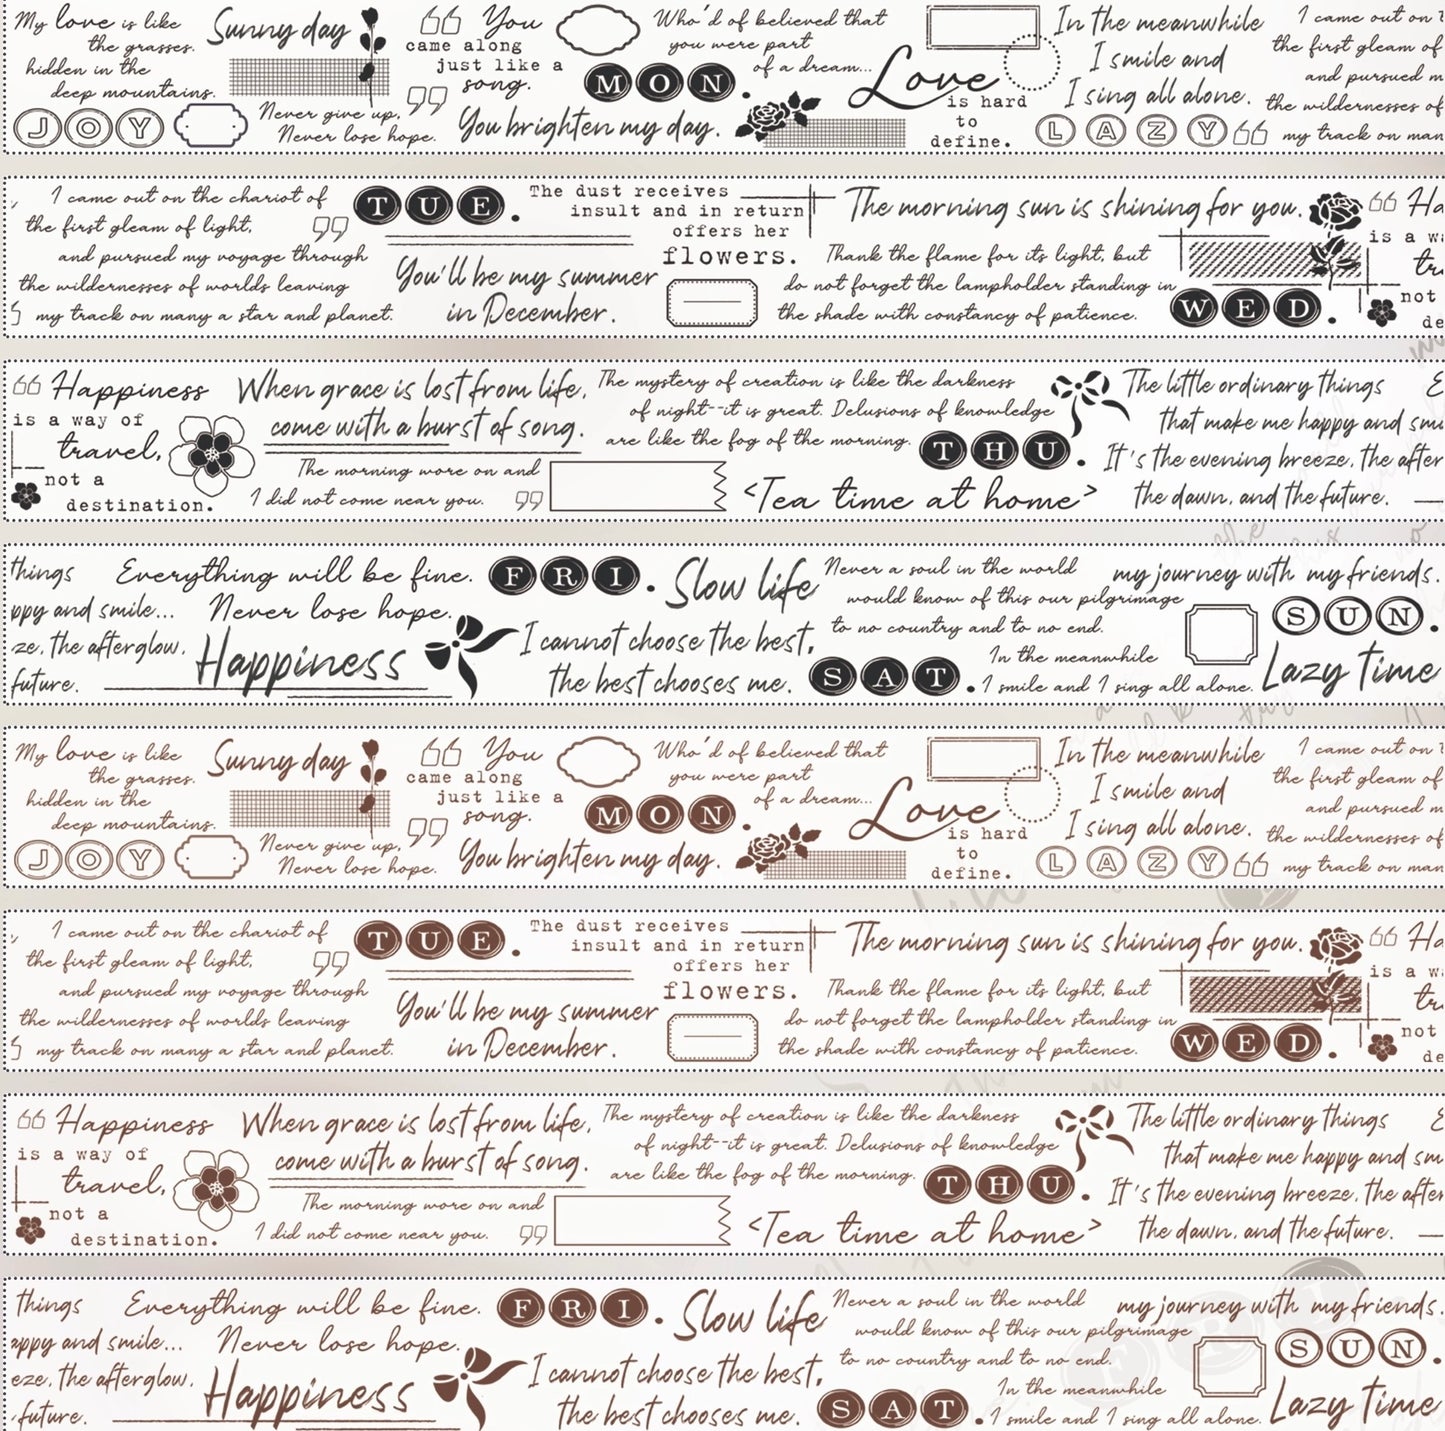 My love is like
the grasses.
hidden in the
deep mountains.
JOY
Sunny day
Never give up,
Never lose hope.
“ You
came along
just like a
song. ”
You brighten my day.
MON.
Who'd of believed that
you were part
of a dream...
Love
is hard
to
define.
In the meanwhile
I smile and
I sing all alone.
LAZY
I came out on
the first gleam of
and pursued m
the wildernesses of
“ my track on man
I came out on the chariot of
the first gleam of light,
and pursued my voyage through
the wildernesses of worlds leaving
my track on many a star and planet.
”
TUE.
You'll be my summer
in December.
The dust receives
insult and in return
offers her
flowers.
The morning sun is shining for you.
Thank the flame for its light, but
do not forget the lampholder standing in
the shade with constancy of patience.
WED.
“ Ha
is a w
tr
not
de
“ Happiness
is a way of
travel,
not a
destination.
When grace is lost from life,
come with a burst of song.
The morning wore on and
I did not come near you. ”
The mystery of creation is like the darkness
of night--it is great. Delusions of knowledge
are like the fog of the morning.
THU.
<Tea time at home>
The little ordinary things
that make me happy and sm
It's the evening breeze, the after
the dawn, and the future.
things
ppy and smile...
ze, the afterglow,
future.
Everything will be fine.
Never lose hope.
Happiness
FRI.
I cannot choose the best,
the best chooses me.
Slow life
Never a soul in the world
would know of this our pilgrimage
to no country and to no end.
SAT.
In the meanwhile
I smile and I sing all alone.
my journey with my friends.
SUN.
Lazy Time
My love is like
the grasses.
hidden in the
deep mountains.
JOY
Sunny day
Never give up,
Never lose hope.
“ You
came along
just like a
song. ”
You brighten my day.
MON.
Who'd of believed that
you were part
of a dream...
Love
is hard
to
define.
In the meanwhile
I smile and
I sing all alone.
LAZY
I came out on
the first gleam of
and pursued m
the wildernesses of
“ my track on man
I came out on the chariot of
the first gleam of light,
and pursued my voyage through
the wildernesses of worlds leaving
my track on many a star and planet.
”
TUE.
You'll be my summer
in December.
The dust receives
insult and in return
offers her
flowers.
The morning sun is shining for you.
Thank the flame for its light, but
do not forget the lampholder standing in
the shade with constancy of patience.
WED.
“ Ha
is a w
tr
not
de
“ Happiness
is a way of
travel,
not a
destination.
When grace is lost from life,
come with a burst of song.
The morning wore on and
I did not come near you. ”
The mystery of creation is like the darkness
of night--it is great. Delusions of knowledge
are like the fog of the morning.
THU.
<Tea time at home>
The little ordinary things
that make me happy and sm
It's the evening breeze, the after
the dawn, and the future.
things
appy and smile...
eze, the afterglow,
future.
Everything will be fine.
Never lose hope.
Happiness
FRI.
I cannot choose the best,
the best chooses me.
Slow life
Never a soul in the world
would know of this our pilgrimage
to no country and to no end.
SAT.
In the meanwhile
I smile and I sing all alone.
my journey with my friends.
SUN.
Lazy Time